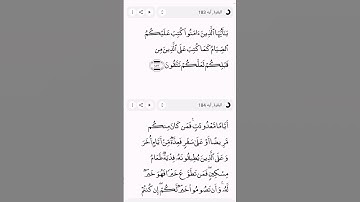 البقرة، آية 183
يَـٰٓأَيُّهَا ٱلَّذِينَ ءَامَنُوا۟ كُتِبَ عَلَيْكُمُ
ٱلصِّيَامُ كَمَا كُتِبَ عَلَى ٱلَّذِينَ مِن
قَبْلِكُمْ لَعَلَّكُمْ تَتَّقُونَ ١٨٣
البقرة، آية 184
أَيَّامًا مَّعْدُودَٰتٍ ۚ فَمَن كَانَ مِنكُم
مَّرِيضًا أَوْ عَلَىٰ سَفَرٍ فَعِدَّةٌ مِّنْ أَيَّامٍ أُخَرَ ۚ
وَعَلَى ٱلَّذِينَ يُطِيقُونَهُۥ فِدْيَةٌ طَعَامُ
مِسْكِينٍ ۖ فَمَن تَطَوَّعَ خَيْرًا فَهُوَ خَيْرٌ
لَّهُۥ ۚ وَأَن تَصُومُوا۟ خَيْرٌ لَّكُمْ ۖ إِن كُنتُمْ